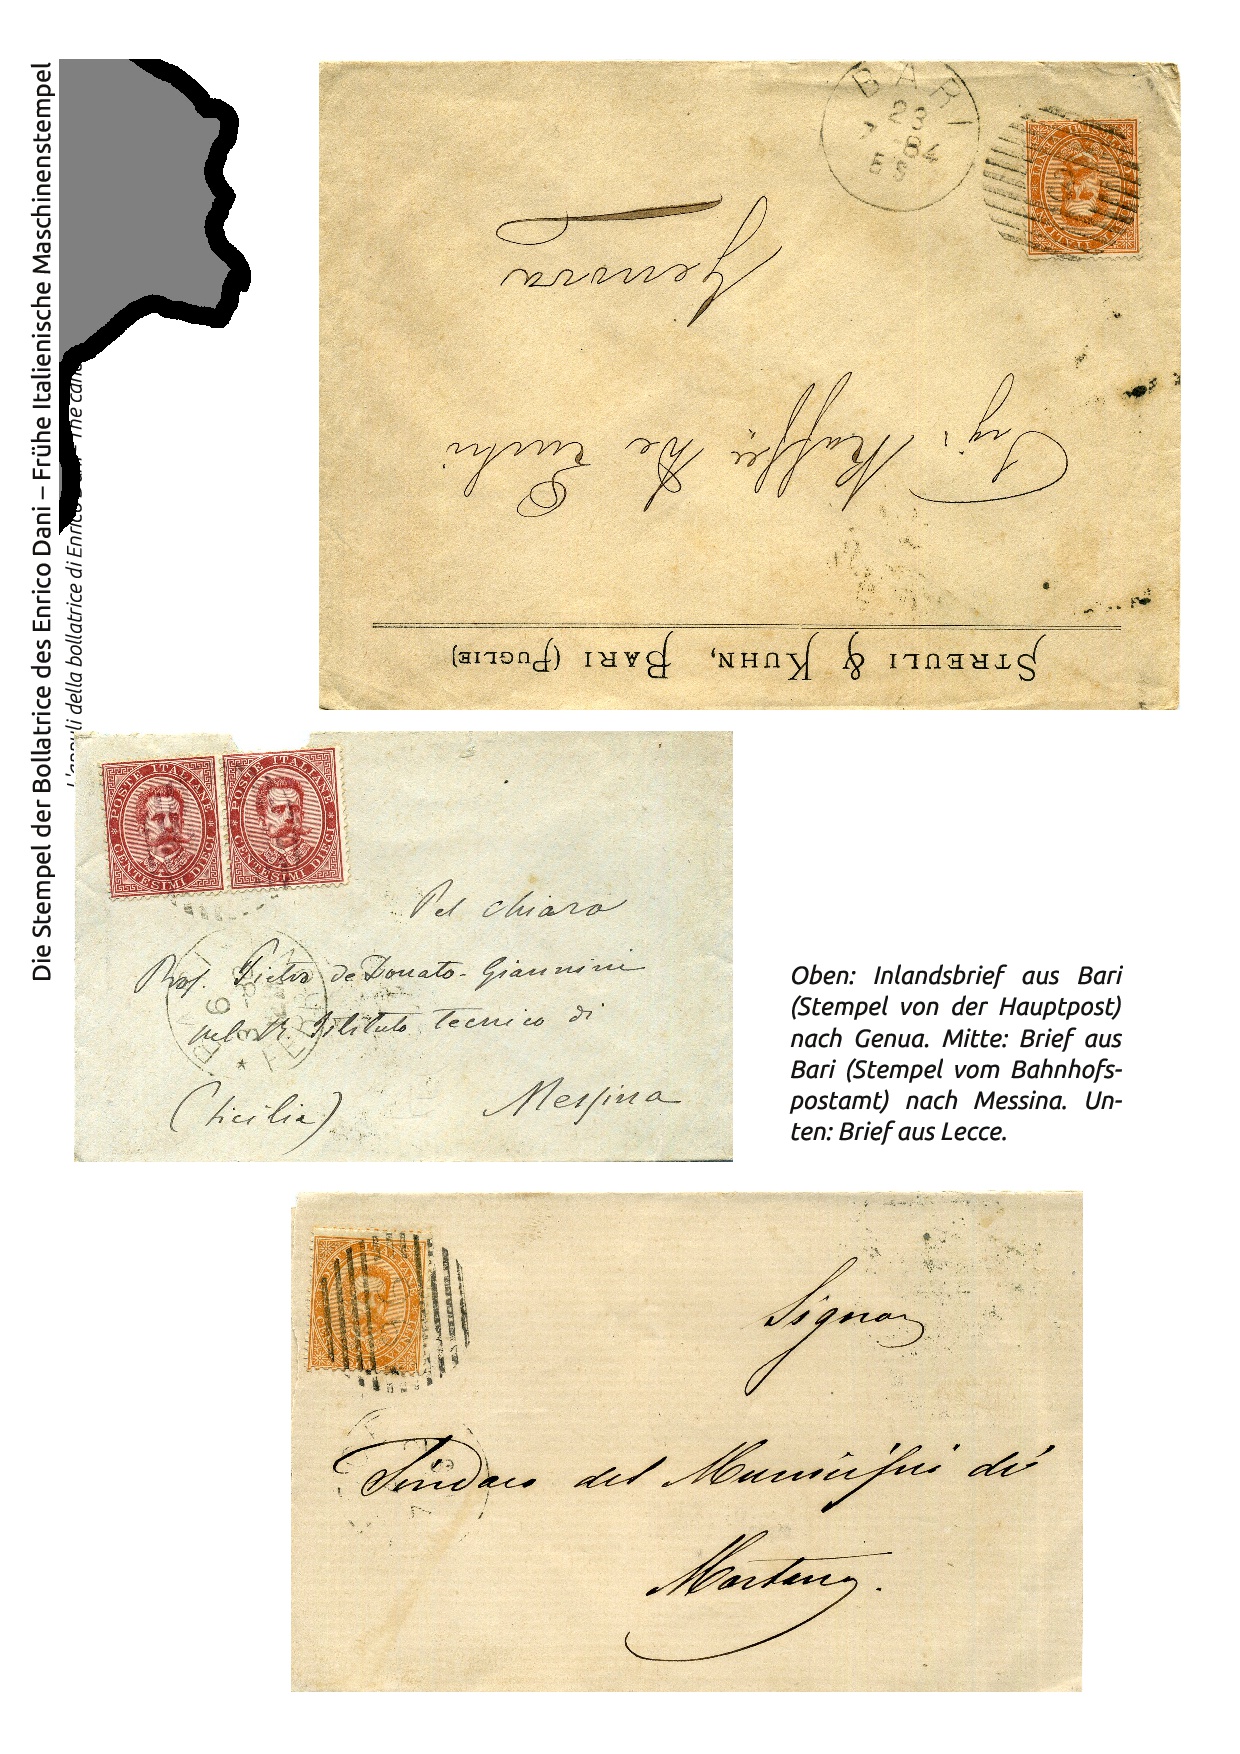 Die Stempel der Bollatrice des Enrico Dani – Frühe Italienische Maschinenstempel
della bollatrice di Enrico
BARI
23
7 84
5 S
Genova
STREULI & KUHN, BARI (PUGLIE)
POSTE ITALIANE
* CENTESIMI DIECI *
POSTE ITALIANE
* CENTESIMI DIECI *
Pel chiaro
Prof. Pietro de Donato-Giannini
nel R. Istituto tecnico di
Messina
(Sicilia)
Oben: Inlandsbrief aus Bari
(Stempel von der Hauptpost)
nach Genua. Mitte: Brief aus
Bari (Stempel vom Bahnhofs-
postamt) nach Messina. Un-
ten: Brief aus Lecce.
Signor
Sindaco del Municipio di